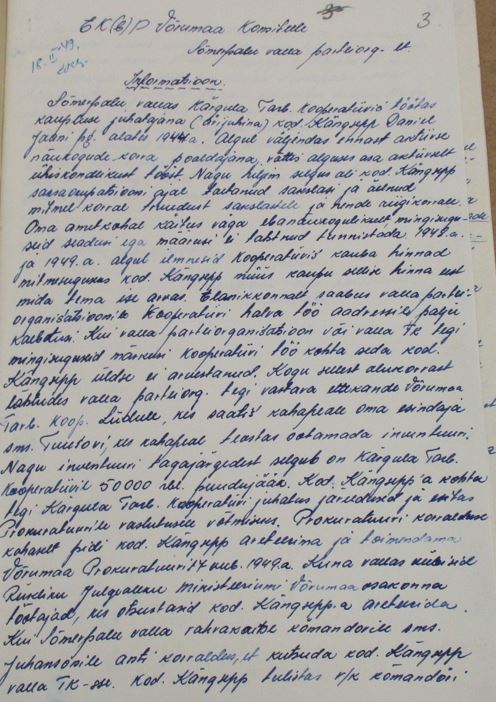 3
EK(b)P Võrumaa Komiteele
Sõmerpalu valla parteiorg. lt
18.II-49.
Informatsioon.
Sõmerpalu vallas Kärgula Tarb. Kooperatiivis töötas
kaupluse juhatajana (ärijuhina) kod. Kängsepp Daniel
Jaani pg. alates 1944 a. Algul väljendas ennast aktiivse
nõukogude korra pooldajana, võttis alguses osa aktiivselt
ühiskondlikust tööst. Nagu hiljem selgus oli kod. Kängsepp
saksaokupatsiooni ajal toitnud sakslasi ja öelnud
mitmel korral truudust sakslastele ja nende riigikorrale.
Oma ametkohal käitus väga ebanõukogulikult mingisugu-
seid seadusi ega määrusi ei tahtnud tunnistada 1948.a.
ja 1949.a. algul ilmnesid kooperatiivis kauba hinnad
mitmesugused kod. Kängsepp müüs kaupu sellise hinna eest
mida tema ise arvas. Elanikkonnalt saabus valla partei-
organisatsioonile Kooperatiivi halva töö aadressile palju
kaebtusi. Kui valla parteiorganisatsioon või valla TK tegi
mingisuguseid märkusi Kooperatiivi töö kohta seda kod.
Kängsepp üldse ei arvestanud. Kogu sellest olukorrast
lähtudes valla parteiorg. tegi vastava ettekande Võrumaa
Tarb. Koop. Liidule, kes saatis kohapeale oma esindaja
sms. kes kohapeal teostas ootamada inventuuri.
Nagu inventuuri tagajärgedest selgub on Kärgula Tarb.
Kooperatiivil 50000 rbl. puudujääk. Kod. Kängsepp'a kohta
tegi Kärgula Tarb. Kooperatiivi juhatus järeldused ja esitas
Prokuratuurile vastutusele võtmiseks. Prokuratuuri korralduse
kohaselt pidi kod. Kängsepp areteerima ja toimendama
Võrumaa Prokuratuuri 17 veeb. 1949.a. Kuna vallas viibisid
Riikliku Julgeoleku Ministeeriumi Võrumaa osakonna
töötajad, kes otsustasid kod. Kängsepp-a areteerida.
Kui Sõmerpalu valla rahvakaitse komandörile sms.
Juhansonile anti korraldus, et kutsuda kod. Kängsepp
valla TK-sse. Kod. Kängsepp tulistas r/k komandöri